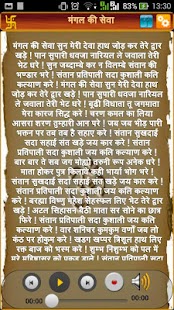 13:30
मंगल की सेवा
मंगल की सेवा सुन मेरी देवा हाथ जोड़ कर तेरे द्वार
खड़े ! पान सुपारी धवजा नारियल ले जवाला तेरी
भेट धरे ! सुन जदाम्बे कर न विलम्बे संतांन की
भण्डार भरे ! संतान प्रतिपाली सदा कुशाली कलि
कल्याण करे ! मंगल की सेवा सुन मेरी देवा हाथ
जोड़ कर तेरे द्वार खड़े ! पान सुपारी धवजा
नारियल ले जवाला तेरी भेट धरे ! मूढी विधाता तु जगमाता
मेरा कारज सिद्ध करे ! चरण कमल का लिया
आसरा शरण तुम्हारी आन परे ! जब जब भीड़ पारी
भक्तन पर तब तब है सहाए करे ! संतांन सुखदाई
सदा सहाई संत खड़े जय कार करे ! संतांन
प्रतिपाली सदा कुशाली जय कलि कल्याण करे !
बार बार से सब जग मोह्यो तरुणी रूप अनेक धरे !
माता होकर पुत्र किलावे कही मार्या भोग भरे !
संतांन सुखदाई सदा सहाई संत खड़े जय जय कार
करे ! संतांन प्रतिपाली सदा कुशाली जय कलि कल्याण
करे ! बरम्हा विष्णु महेश सेहस्कत लिए भेट तेरे द्वार
खड़े ! अटल सिहासन बैठी माता सर सोने का छत्र
फिरे ! संतांन प्रतिपाली सदा कुशाली जय कलि
कल्याण करे ! वार शनिचर कुमकुम वर्णों जब लो
कंठ पर हॉकुम करे ! खड़ग खप्पर त्रिशूल हाथ लिए
रक्त बाज को भस्म करे ! शुम्भ निशुम्भ को पल में
00:00
00:00